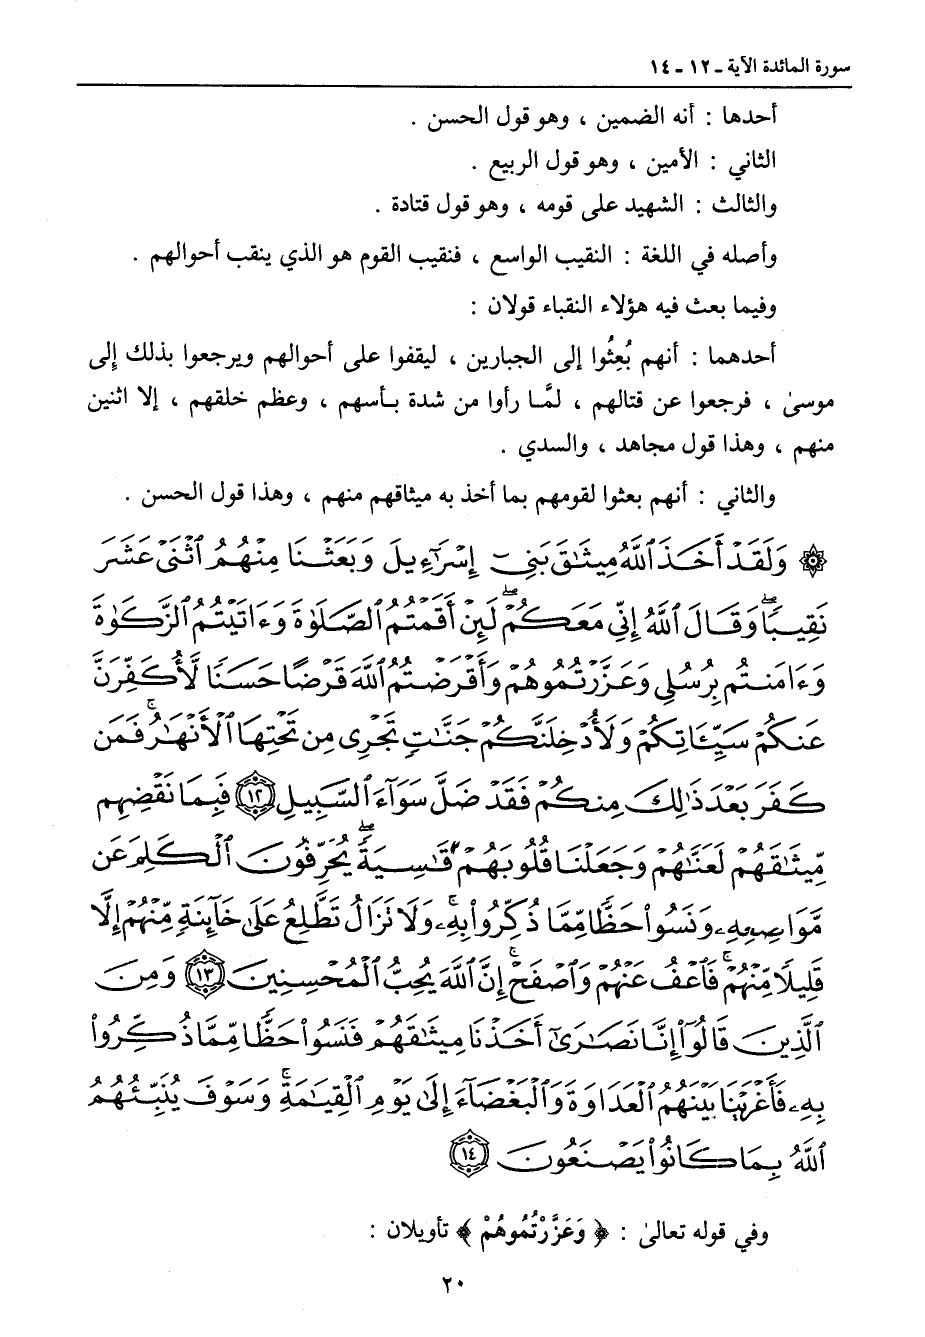 سورة المائدة الآية ـ ١٢ ـ ١٤
أحدها : أنه الضمين ، وهو قول الحسن .
الثاني : الأمين ، وهو قول الربيع .
والثالث : الشهيد على قومه ، وهو قول قتادة .
وأصله في اللغة : النقيب الواسع ، فنقيب القوم هو الذي ينقب أحوالهم .
وفيما بعث فيه هؤلاء النقباء قولان :
أحدهما : أنهم بُعِثُوا إلى الجبارين ، ليقفوا على أحوالهم ويرجعوا بذلك إلى
موسىٰ ، فرجعوا عن قتالهم ، لمَّا رأوا من شدة بأسهم ، وعظم خلقهم ، إلا اثنين
منهم ، وهذا قول مجاهد ، والسدي .
والثاني : أنهم بعثوا لقومهم بما أخذ به ميثاقهم منهم ، وهذا قول الحسن .
۞ وَلَقَدْ أَخَذَ ٱللَّهُ مِيثَٰقَ بَنِىٓ إِسْرَٰٓءِيلَ وَبَعَثْنَا مِنْهُمُ ٱثْنَىْ عَشَرَ
نَقِيبًا ۖ وَقَالَ ٱللَّهُ إِنِّى مَعَكُمْ ۖ لَئِنْ أَقَمْتُمُ ٱلصَّلَوٰةَ وَءَاتَيْتُمُ ٱلزَّكَوٰةَ
وَءَامَنتُم بِرُسُلِى وَعَزَّرْتُمُوهُمْ وَأَقْرَضْتُمُ ٱللَّهَ قَرْضًا حَسَنًا لَّأُكَفِّرَنَّ
عَنكُمْ سَيِّـَٔاتِكُمْ وَلَأُدْخِلَنَّكُمْ جَنَّٰتٍ تَجْرِى مِن تَحْتِهَا ٱلْأَنْهَٰرُ ۚ فَمَن
كَفَرَ بَعْدَ ذَٰلِكَ مِنكُمْ فَقَدْ ضَلَّ سَوَآءَ ٱلسَّبِيلِ ١٢ فَبِمَا نَقْضِهِم
مِّيثَٰقَهُمْ لَعَنَّٰهُمْ وَجَعَلْنَا قُلُوبَهُمْ قَٰسِيَةً ۖ يُحَرِّفُونَ ٱلْكَلِمَ عَن
مَّوَاضِعِهِۦ ۙ وَنَسُوا۟ حَظًّا مِّمَّا ذُكِّرُوا۟ بِهِۦ ۚ وَلَا تَزَالُ تَطَّلِعُ عَلَىٰ خَآئِنَةٍ مِّنْهُمْ إِلَّا
قَلِيلًا مِّنْهُمْ ۖ فَٱعْفُ عَنْهُمْ وَٱصْفَحْ ۚ إِنَّ ٱللَّهَ يُحِبُّ ٱلْمُحْسِنِينَ ١٣ وَمِنَ
ٱلَّذِينَ قَالُوٓا۟ إِنَّا نَصَٰرَىٰٓ أَخَذْنَا مِيثَٰقَهُمْ فَنَسُوا۟ حَظًّا مِّمَّا ذُكِّرُوا۟
بِهِۦ فَأَغْرَيْنَا بَيْنَهُمُ ٱلْعَدَاوَةَ وَٱلْبَغْضَآءَ إِلَىٰ يَوْمِ ٱلْقِيَٰمَةِ ۚ وَسَوْفَ يُنَبِّئُهُمُ
ٱللَّهُ بِمَا كَانُوا۟ يَصْنَعُونَ ١٤
وفي قوله تعالىٰ : ﴿ وَعَزَّرْتُمُوهُمْ ﴾ تأويلان :
٢٠